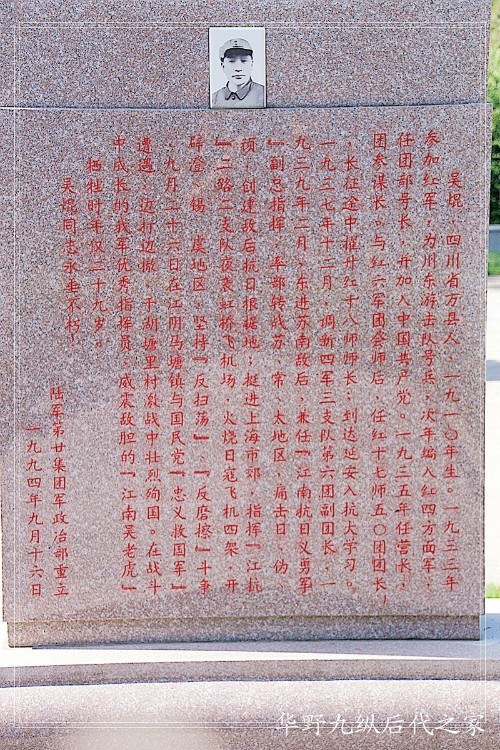 吴焜，四川省万县人，一九一〇年生。一九三三年
参加红军，为川东游击队号兵，次年编入红四方面军，
任团部号长，并加入中国共产党。一九三五年任营长、
团参谋长。与红六军团会师后，任红十七师五〇团团长，
长征途中擢升红十八师师长；到达延安入抗大学习。
一九三七年十二月，调新四军三支队第六团副团长，一
九三九年二月，东进苏南敌后，兼任『江南抗日义勇军
』副总指挥，率部转战苏、常、太地区，痛击日、伪、
顽，创建敌后抗日根据地；挺进上海市郊，指挥『江抗
』二路二支队夜袭虹桥飞机场，火烧日寇飞机四架，开
辟澄、锡、虞地区，坚持『反扫荡』、『反磨擦』斗争
。九月二十六日在江阴马塘镇与国民党『忠义救国军』
遭遇，边打边撤，于湖塘里村激战中壮烈殉国。在战斗
中成长的我军优秀指挥员，威震敌胆的『江南吴老虎』
牺牲时年仅二十九岁。
吴焜同志永垂不朽！
陆军第廿集团军政治部重立
一九九四年九月十六日
华野九纵后代之家